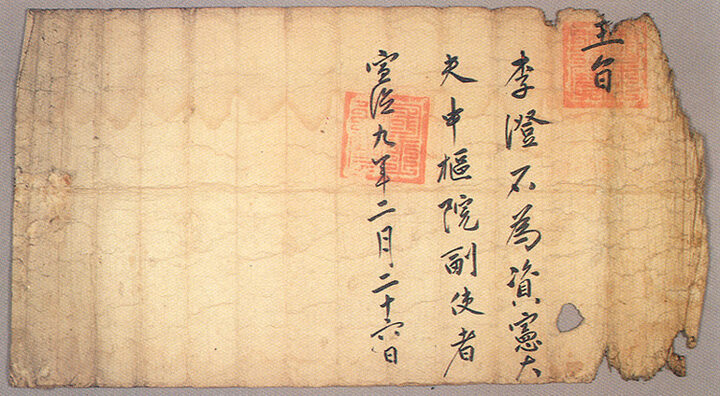 王旨
李澄石為資憲大
夫中樞院副使者
宣德九年二月二十六日